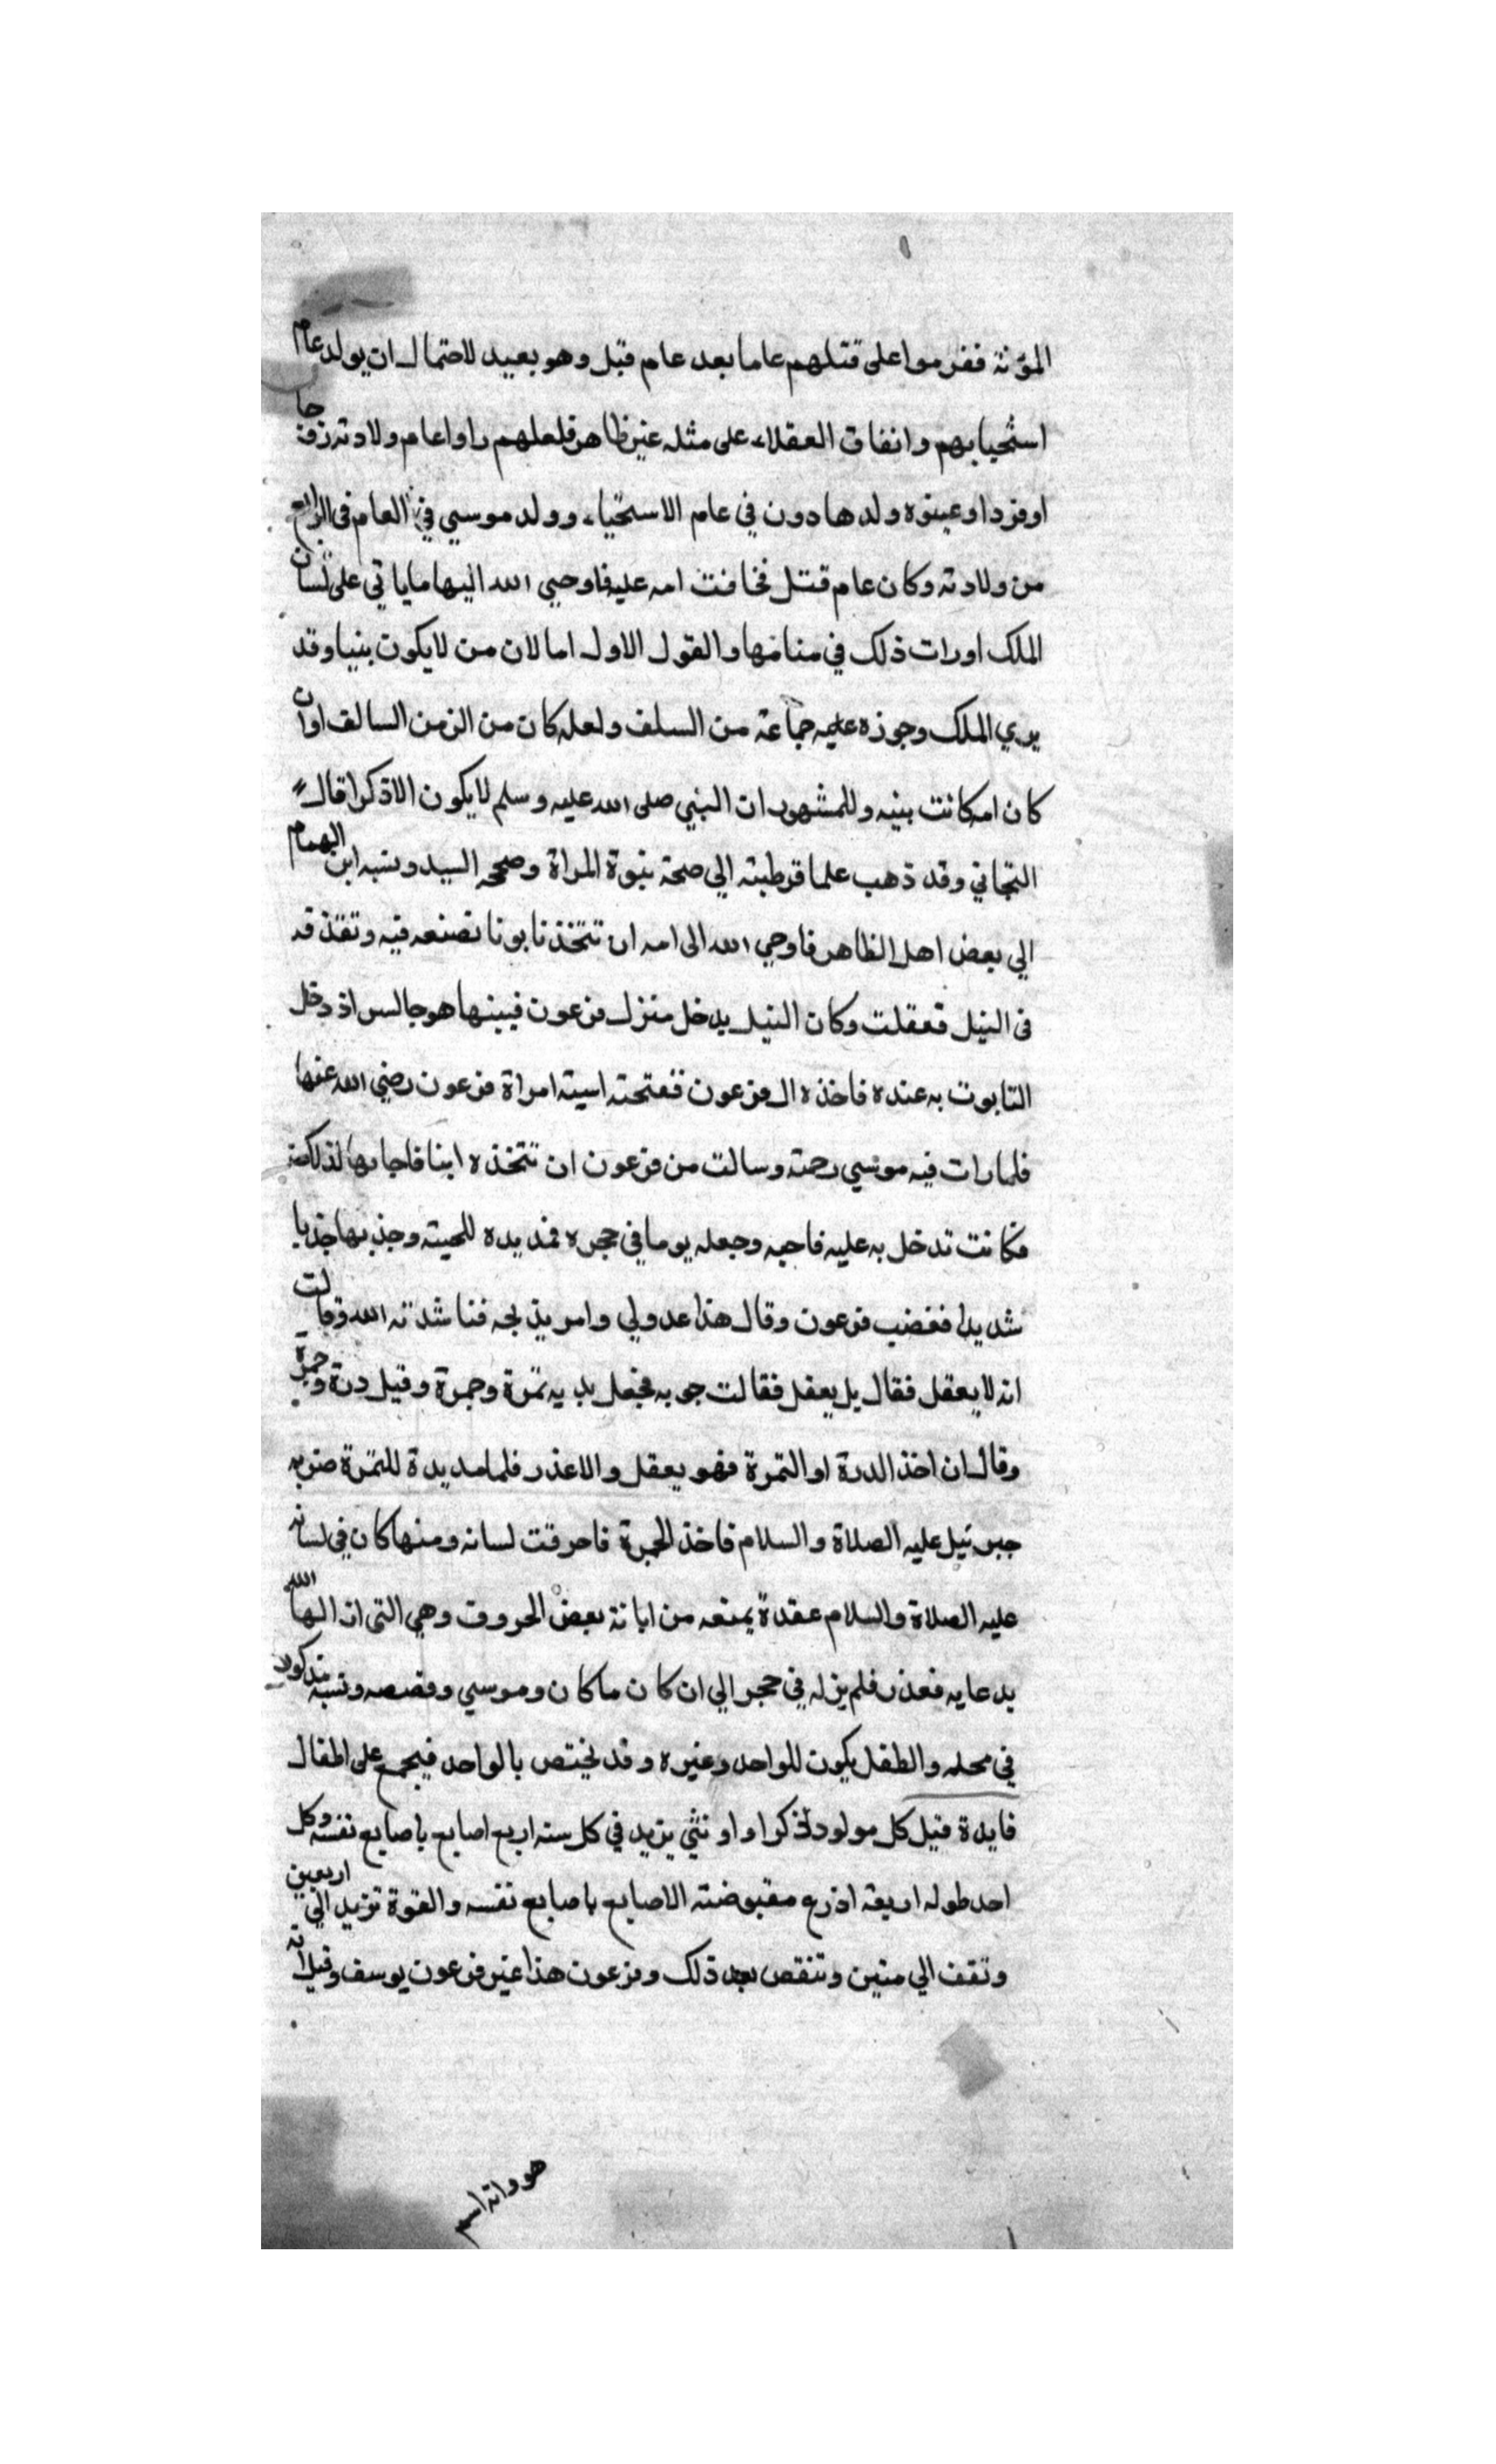 المؤنة ففرموا على قتلهم عاما بعد عام قبل وهو بعيد لاحتمال ان يولد عام
استحيابهم واتفاق العقلاء على مثله غير ظاهر فلعلهم راوا عام ولادته
او فردا وعينوه ولدها دون في عام الاستحياء وولد موسي في العام في الرابع
من ولادته وكان عام قتل فخافت امه عليه فاوحي الله اليها ما ياتي على لسان
الملك او رات ذلك في منامها والقول الاول اما لان من لا يكون نبيا وقد
يري الملك وجوزه عليه جماعة من السلف ولعله كان من الزمن السالف او ان
كان امه كانت نبيه وللمشهور ان النبي صلى الله عليه وسلم لا يكون الا ذكرا قال
التجاني وقد ذهب علما قرطبته الي صحة نبوة المراة وصححه السيد ونسبه ابن الهمام
الي بعض اهل الظاهر فاوحي الله الى امه ان تتخذ تابوتا تصنعه فيه وتقذ قه
في النيل فعقلت وكان النيل يدخل منزل فرعون فبينها هو جالس اذ دخل
التابوت به عنده فاخذه ال فرعون ففتحته اسيته امراة فرعون رضي الله عنها
فلما رات فيه موسي رحمته وسالت من فرعون ان تتخذه ابنا فاجابها لذلك
فكانت تدخل به عليه فاحبه وجعله يوما في حجره فمد يده للحيته وجذبها جذبا
شديدا فغضب فرعون وقال هذا عدولي وامر بذبحه فناشدته الله وقالت
انه لا يعقل فقال بل يعقل فقالت جو به فجعل بيديه تمرة وجمرة وقيل درة وجمرة
وقال ان اخذ الدرة او التمرة فهو يعقل والا عذر فلما مد يدة للتمرة ضربه
جبرئيل عليه الصلاة والسلام فاخذ الجمرة فاحرقت لسانه ومنها كان في لسانه
عليه الصلاة والسلام عقدة يمنعه من ابانة بعض الحروف وهي التي ازالها الله
بدعايه فعذر فلم يزل في حجر الي ان كان ما كان وموسي وقصصه ونسبه
في محله والطفل يكون للواحد وغيره وقد يختص بالواحد فيجمع على اطفال
فايدة قيل كل مولود ذكرا او انثي يزيد في كل سنه اربع اصابع باصابع نفسه وكل
احد طوله اربعة اذرع مقبوضته الاصابع باصابع نفسه والقوة تزيد الي اربعين
وتقف الي ستين وتنقص بعد ذلك وفرعون هذا غير فرعون يوسف وقيل انه
هو وانه اسم